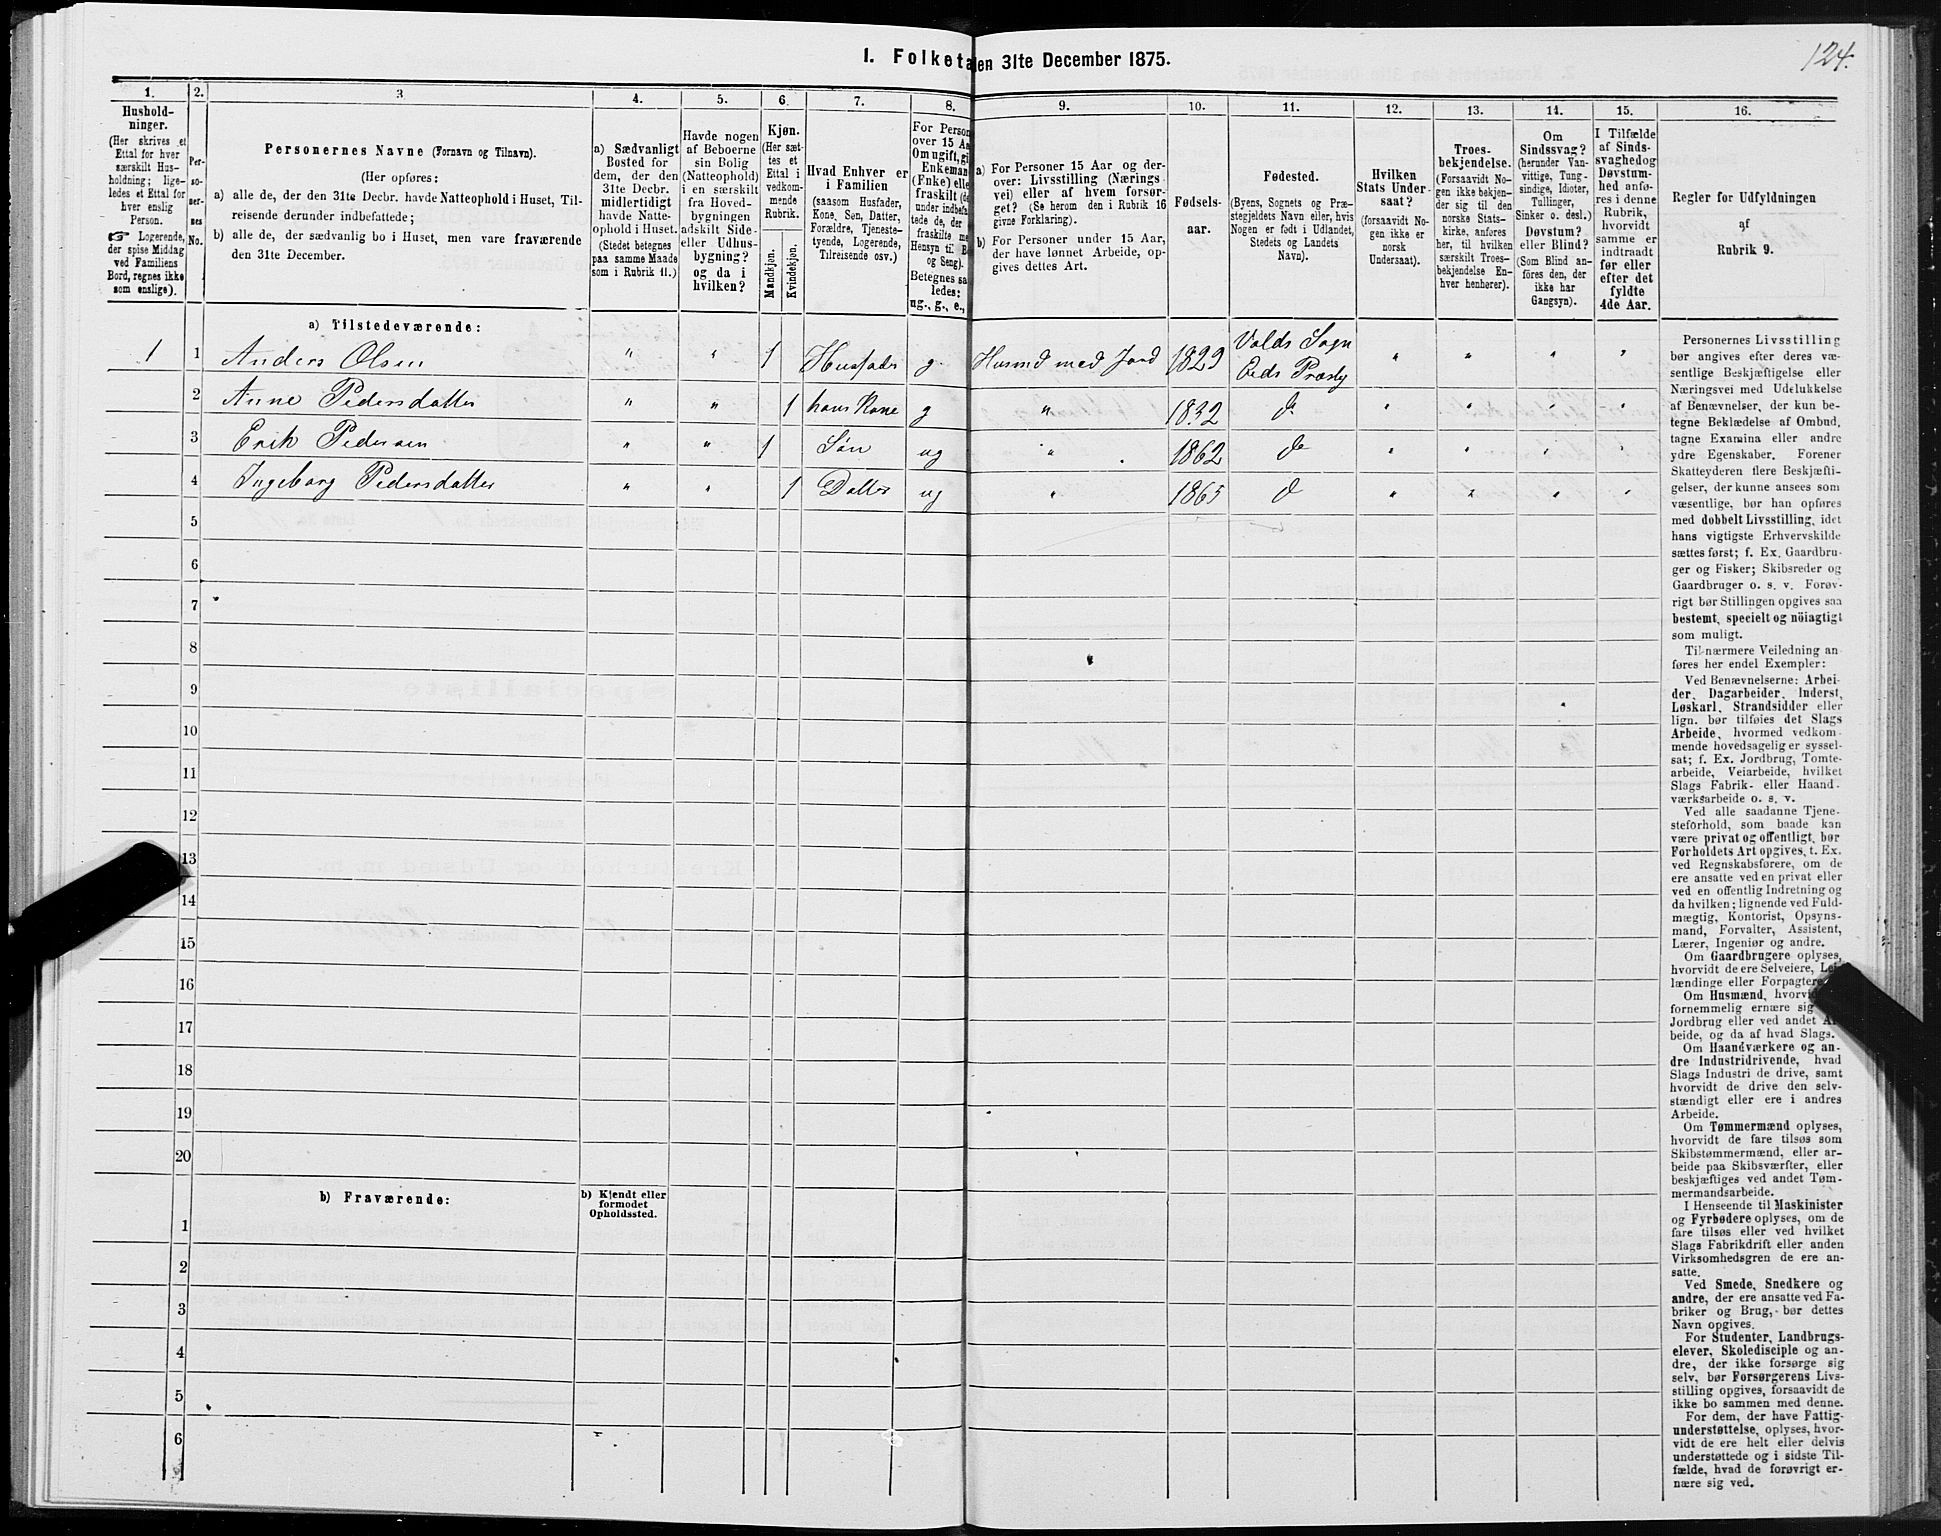 124.
I. Folketa en 31te December 1875.
1.
Hushold-
ninger.
(Her skrives et
Ettal for hver
særskilt Hus-
holdning; lige-
ledes et Ettal for
hver enslig
Person.
☞ Logerende,
der spise Middag
ved Familiens
Bord, regnes ikke
som enslige).
2.
Per-
so-
ner-
nes
No.
3
Personernes Navne (Fornavn og Tilnavn).
(Her opføres:
a) alle de, der den 31te Decbr. havde Natteophold i Huset, Til-
reisende derunder indbefattede;
b) alle de, der sædvanlig bo i Huset, men vare fraværende
den 31te December.
4.
a) Sædvanligt
Bosted for
dem, der den
31te Decbr.
midlertidigt
havde Natte-
ophold i Huset.
(Stedet betegnes
paa samme Maade
som i Rubrik 11.)
5.
Havde nogen
af Beboerne
sin Bolig
(Natteophold)
i en særskilt
fra Hoved-
bygningen
adskilt Side-
eller Udhus-
bygning?
og da i
hvilken?
6.
Kjøn.
(Her sæt-
tes et
Ettal i
vedkom-
mende
Rubrik.
Mandkjøn.
Kvindekjøn.
7.
Hvad Enhver er
i Familien
(saasom Husfader,
Kone, Søn, Datter,
Forældre, Tjeneste-
tyende, Logerende,
Tilreisende osv.)
8.
For Person
over 15 Aa
Om ugift, gi
Enkeman
(Enke) elle
fraskilt (de
under indbefa
tede de, der
fraskilte me
Hensyn til B
og Seng).
Betegnes sa
ledes:
ug., g., e.,
9.
a) For Personer 15 Aar og der-
over: Livsstilling (Nærings-
vei) eller af hvem forsør-
get? (Se herom den i Rubrik 16
givne Forklaring).
b) For Personer under 15 Aar,
der have lønnet Arbeide, op-
gives dettes Art.
10.
Fødsels-
aar.
11.
Fødested.
(Byens, Sognets og Præ-
stegjeldets Navn eller, hvis
Nogen er født i Udlandet,
Stedets og Landets
Navn).
12.
Hvilken
Stats Under-
saat?
(forsaavidt No-
gen ikke er
norsk
Undersaat).
13.
Troes-
bekjendelse.
(Forsaavidt No-
gen ikke bekjen-
der sig til den
norske Stats-
kirke, anføres
her, til hvilken
særskilt Troes-
bekjendelse En-
hver henhører).
14.
Om
Sindssvag?
(herunder Van-
vittige, Tung-
sindige, Idioter,
Tullinger,
Sinker o. desl.)
Døvstum?
eller Blind?
(Som Blind an-
føres den, der
ikke har
Gangsyn).
15.
I Tilfælde
af Sinds-
svaghed og
Døvstum-
hed anfø-
res i denne
Rubrik,
hvorvidt
samme er
indtraadt
før eller
efter det
fyldte
4de Aar.
16.
Regler for Udfyldningen
af
Rubrik 9.
a) Tilstedeværende:
1 1 Anders Olsen " " 1 Husfader g. Husmd med Jord 1829 Volds Sogn Eids Præstg " " " "
2 Anne Pedersdatter " " 1 hans Kone g " 1832 do " " " "
3 Erik Pedersen " " 1 Søn ug " 1862 do " " " "
4 Ingeborg Pedersdatter " " 1 Datter ug " 1865 do " " " "
5
6
7
8
9
10
11
12
13
14
15
16
17
18
19
20
b) Fraværende:
b) Kjendt eller
formodet
Opholdssted.
1
2
3
4
5
6
Personernes Livsstilling
bør angives efter deres væ-
sentlige Beskjæftigelse eller
Næringsvei med Udelukkelse
af Benævnelser, der kun be-
tegne Beklædelse af Ombud,
tagne Examina eller andre
ydre Egenskaber. Forener
Skatteyderen flere Beskjæfti-
gelser, der kunne ansees som
væsentlige, bør han opføres
med dobbelt Livsstilling, idet
hans vigtigste Erhvervskilde
sættes først; f. Ex. Gaardbru-
ger og Fisker; Skibsreder og
Gaardbruger o. s. v. Forøv-
rigt bør Stillingen opgives saa
bestemt, specielt og nöiagtigt
som muligt.
Til nærmere Veiledning an-
føres her endel Exempler:
Ved Benævnelserne: Arbei-
der, Dagarbeider, Inderst,
Løskarl, Strandsidder eller
lign. bør tilføies det Slags
Arbeide, hvormed vedkom-
mende hovedsagelig er syssel-
sat; f. Ex. Jordbrug, Tomte-
arbeide, Veiarbeide, hvilket
Slags Fabrik- eller Haand-
værksarbeide o. s. v.
Ved alle saadanne Tjene-
steforhold, som baade kan
være privat og offentligt, bør
Forholdets Art opgives, t. Ex.
ved Regnskabsførere, om de
ere ansatte ved en privat eller
ved en offentlig Indretning og
da hvilken; lignende ved Fuld-
mægtig, Kontorist, Opsyns-
mand, Forvalter, Assistent,
Lærer, Ingeniør og andre.
Om Gaardbrugere oplyses,
hvorvidt de ere Selveiere, Lei-
lændinge eller Forpagtere
Om Husmænd, hvorvidt
fornemmelig ernære sig
Jordbrug eller ved andet Ar-
beide, og da af hvad Slags.
Om Haandværkere og an-
dre Industridrivende, hvad
Slags Industri de drive, samt
hvorvidt de drive den selv-
stændigt eller ere i andres
Arbeide.
Om Tømmermænd oplyses,
hvorvidt de fare tilsøs som
Skibstømmermænd, eller ar-
beide paa Skibsværfter, eller
beskjæftiges ved andet Tøm-
mermandsarbeide.
I Henseende til Maskinister
og Fyrbødere oplyses, om de
fare tilsøs eller ved hvilket
Slags Fabrikdrift eller anden
Virksomhedsgren de ere an-
satte.
Ved Smede, Snedkere og
andre, der ere ansatte ved Fa-
briker og Brug, bør dettes
Navn opgives.
For Studenter, Landbrugs-
elever, Skoledisciple og an-
dre, der ikke forsørge sig
selv, bør Forsørgerens Livs-
stilling opgives, forsaavidt de
ikke bo sammen med denne.
For dem, der have Fattig-
understøttelse, oplyses, hvor-
vidt de ere helt eller delvis
understøttede og i sidste Til-
fælde, hvad de forøvrigt er-
nære sig ved.